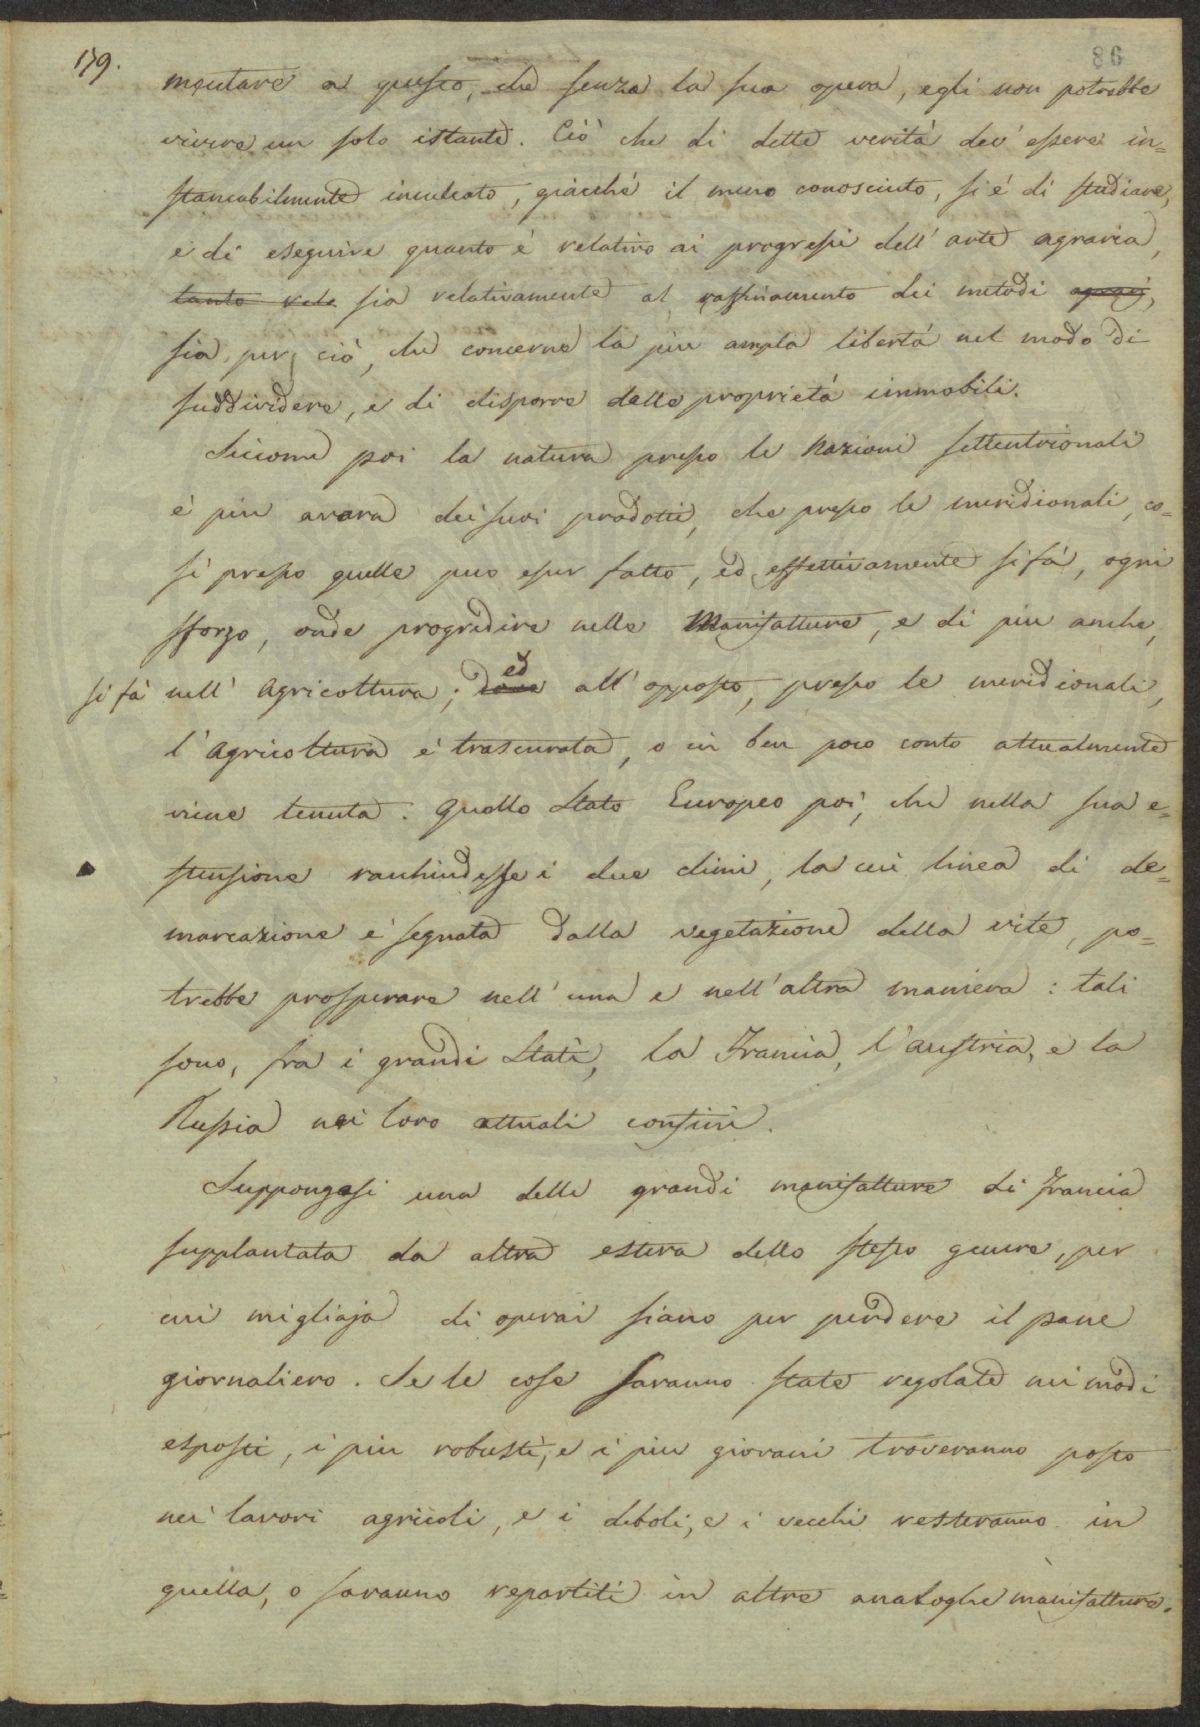 179.
86
mentare a questo, che senza la sua opera, egli non potrebbe
vivere un solo istante. Ciò che di dette verità dev'essere in=
stancabilmente inculcato, giacché il meno conosciuto, si è di studiare,
e di eseguire quanto è relativo ai progressi dell'arte agraria,
tanto rela sia relativamente al raffinamento dei metodi agrarj,
sia per ciò, che concerne la piu ampla libertà nel modo di
suddividere, e di disporre delle proprietà immobili.
Siccome poi la natura presso le Nazioni settentrionali
è piu avara dei suoi prodotti, che presso le meridionali, co=
sì presso quelle puo esser fatto, ed effettivamente si fà, ogni
sforzo, onde progredire nelle Manifatture, e di piu anche,
si fà nell'Agricoltura; dove ed all'opposto, presso le meridionali,
l'Agricoltura è trascurata, o in ben poco conto attualmente
viene tenuta. Quello Stato Europeo poi, che nella sua e=
stensione racchiudesse i due climi, la cui linea di de=
marcazione è segnata dalla vegetazione della vite, po=
trebbe prosperare nell'una e nell'altra maniera: tali
sono, fra i grandi Stati, la Francia, l'Austria, e la
Russia nei loro attuali confini.
Suppongasi una delle grandi manifatture di Francia
supplantata da altra estera dello stesso genere, per
cui migliaja di operai siano per perdere il pane
giornaliero. Se le cose saranno state regolate nei modi
esposti, i piu robusti, e i piu giovani troveranno posto
nei lavori agricoli, e i deboli, e i vecchi resteranno in
quella, o saranno repartiti in altre analoghe manifatture.